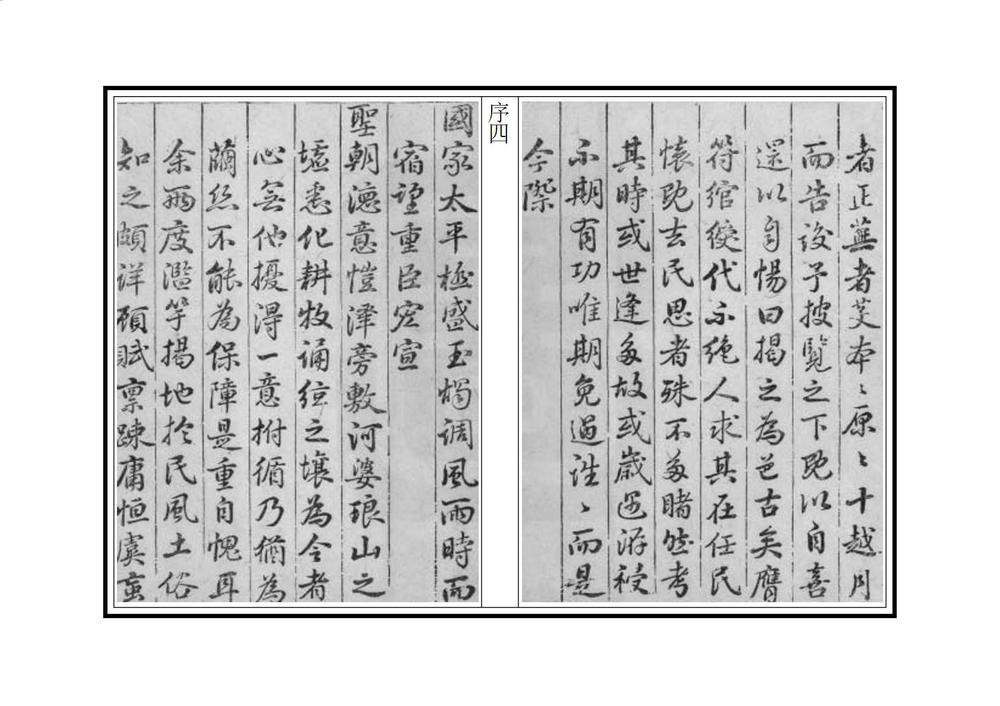 者正蕪者芟本〻原〻十越月
而告竣予披覽之下既以自喜
還以自惕曰揭之為邑古矣膺
符綰綬代不絕人求其在任民
懷既去民思者殊不多睹然考
其時或世逢多故或歲遇洊祲
不期有功唯期免過誰〻而是
今際
序四
國家太平極盛玉燭調風雨時而
宿望重臣宏宣
聖朝德意愷澤旁敷河婆琅山之
墟悉化耕牧誦絃之壤為令者
心無他擾得一意拊循乃猶為
繭絲不能為保障是重自愧耳
余兩度濫竽揭地於民風土俗
知之頗詳顧賦稟疎庸恒虞蚉